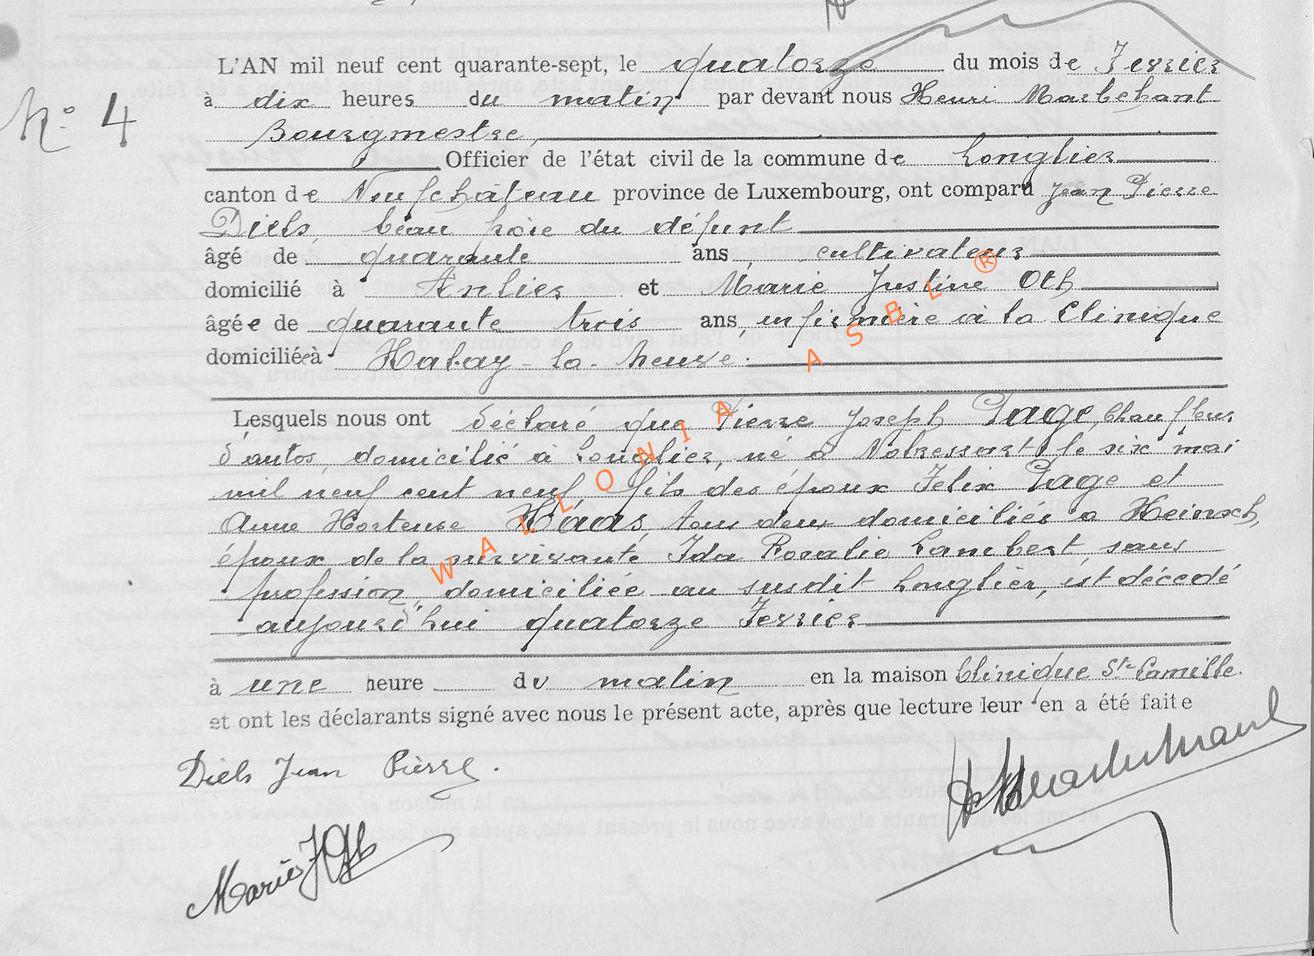 L'AN mil neuf cent quarante-sept, le quatorze du mois de Fevrier
N° 4
à dix heures du matin par devant nous Henri Marbehant
Bourgmestre,
Officier de l'état civil de la commune de Longlier
canton de Neufchâteau province de Luxembourg, ont comparu Jean Pierre
Diels, beau frère du défunt
âgé de quarante ans cultivateur
domicilié à Anlier et Marie Justine Oth
âgée de quarante trois ans, infirmière à la Clinique
domiciliée à Habay-la-neuve.
Lesquels nous ont déclaré que Pierre Joseph Page, Chauffeur
d'autos, domicilié à Longlier, né à Nobressart le six mai
mil neuf cent neuf fils des époux Felix Page et
Anne Hortense Haas, tous deux domiciliés à Heinsch,
époux de la survivante, Ida Rosalie Lambert sans
profession domiciliée au susdit Longlier, est décédé
aujourd'hui quatorze Fevrier
à une heure du matin en la maison Clinique Ste Camille.
et ont les déclarants signé avec nous le présent acte, après que lecture leur en a été faite
Diels Jean Pierre.
Marie J Oth
WALLONIA ASBL ®